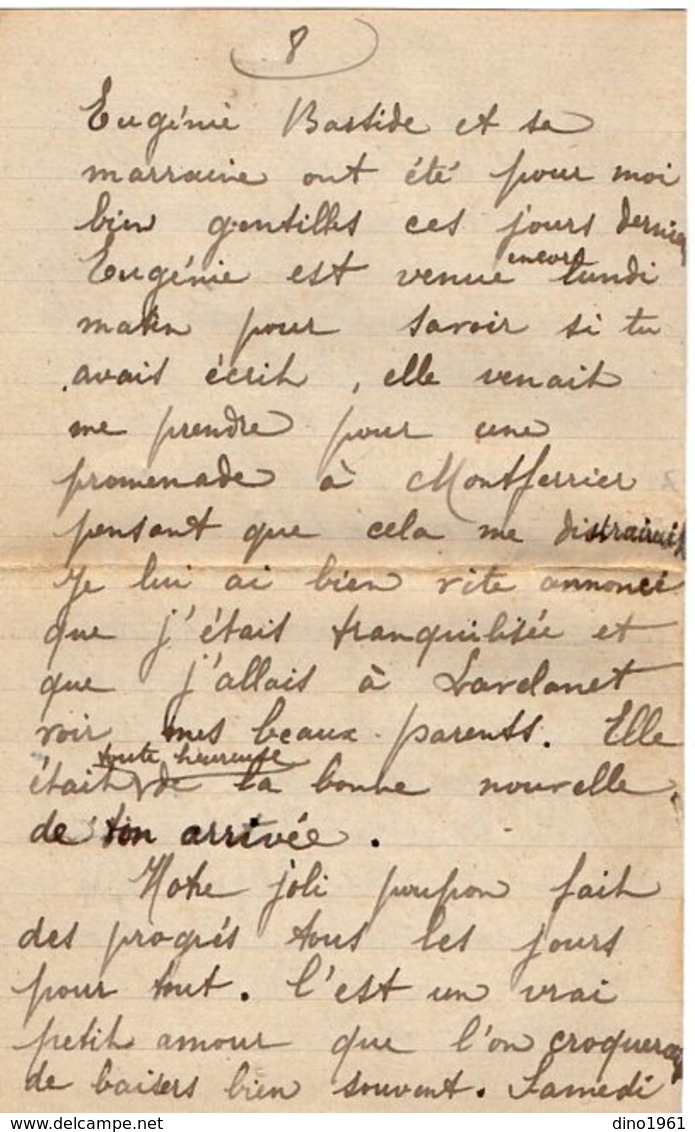 8
Eugénie Bastide et sa
marraine ont été pour moi
bien gentilles ces jours derniers
Eugénie est venue encore lundi
matin pour savoir si tu
avais écrit, elle venait
me prendre pour une
promenade à Montferrier
pensant que cela me distrairait
Je lui ai bien vite annoncé
que j'étais tranquilisée et
que j'allais à Lavelanet
voir mes beaux-parents. Elle
était toute heureuse de la bonne nouvelle
de ton arrivée.
Notre joli poupon fait
des progrès tous les jours
pour tout. C'est un vrai
petit amour que l'on croquerait
de baisers bien souvent. Samedi
delcampe.net
dino1961